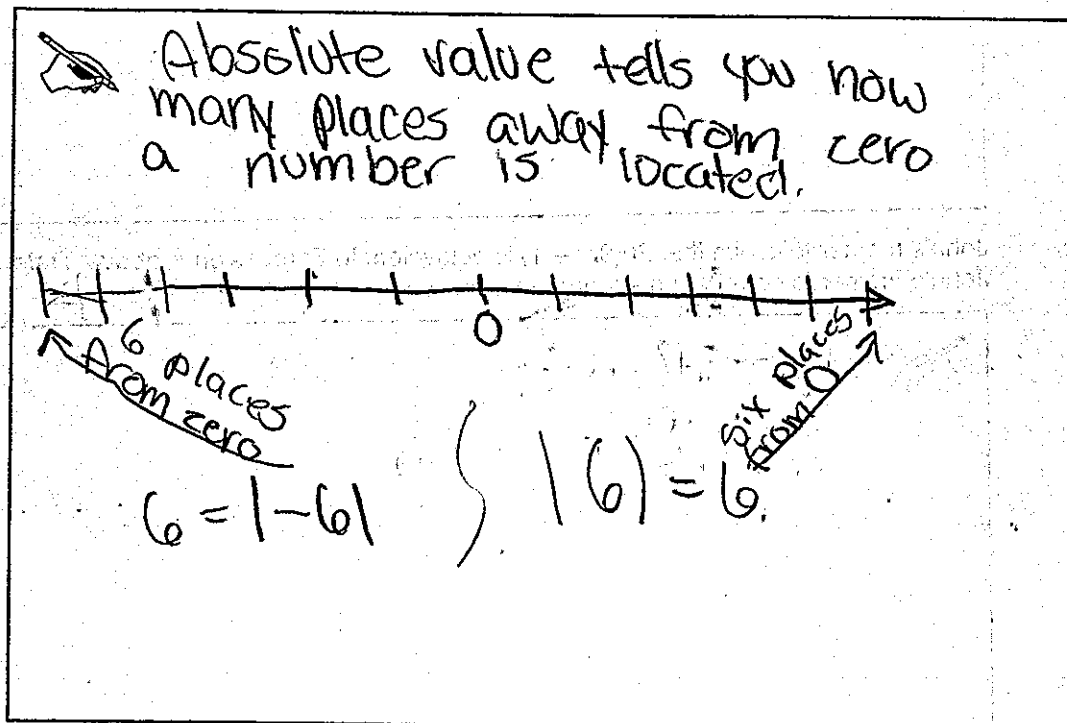 Absolute value tells you how
many places away from zero
a number is located.
0
6 places
from zero
six places
from 0
6 = |-6|
|6| = 6.